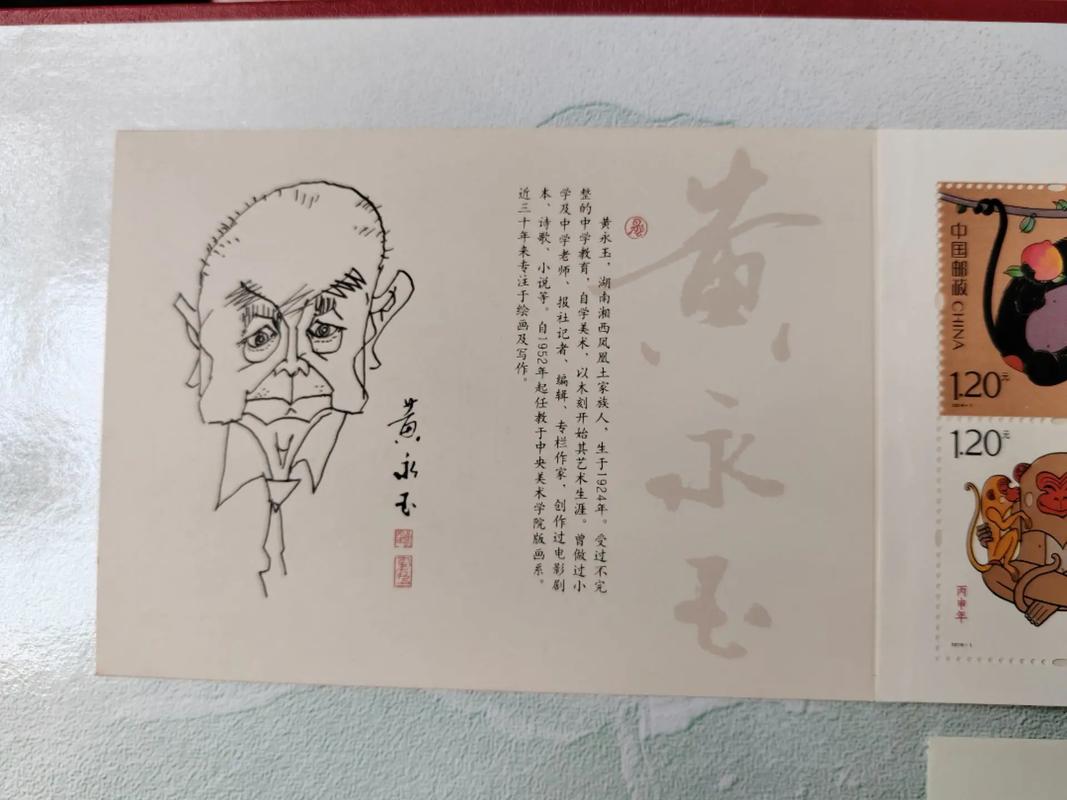 黄永玉
黄永玉，湖南湘西凤凰土家族人，生于1924年。受过不完
整的中学教育，自学美术，以木刻开始其艺术生涯。曾做过小
学及中学老师、报社记者、编辑、专栏作家，创作过电影剧
本、诗歌、小说等。自1952年起任教于中央美术学院版画系。
近三十年来专注于绘画及写作。
黄永玉
中国邮政 CHINA
1.20元
1.20元
丙申年